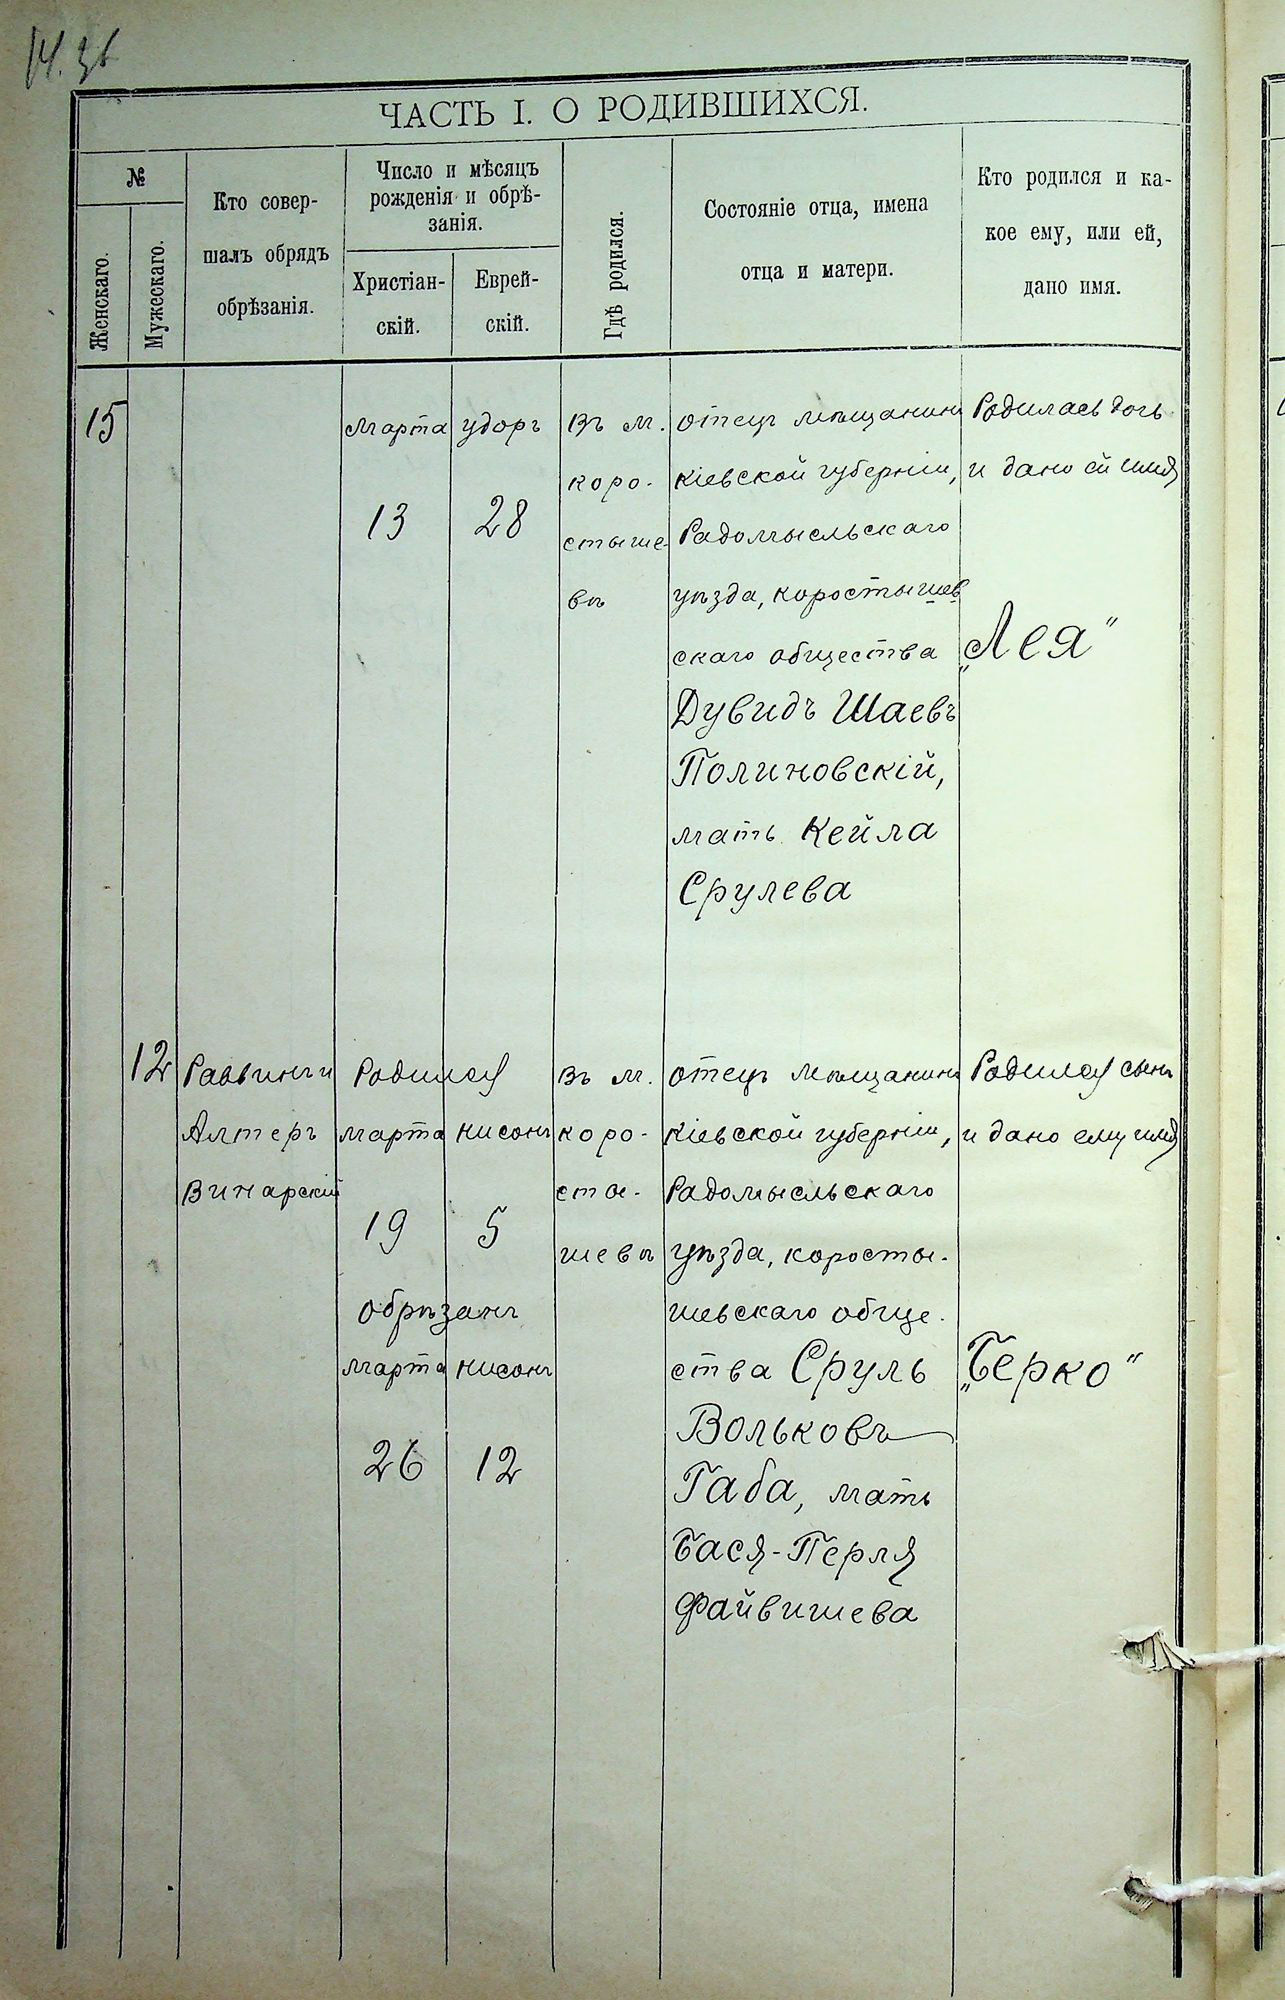 ЧАСТЬ I. О РОДИВШИХСЯ.
№
Женскаго.
Мужескаго.
Кто совер-
шалъ обрядъ
обрѣзанія.
Число и мѣсяцъ
рожденія и обрѣ-
занія.
Христіан-
скій.
Еврей-
скій.
Гдѣ родился.
Состояніе отца, имена
отца и матери.
Кто родился и ка-
кое ему, или ей,
дано имя.
15
марта
13
удоръ
28
въ м.
коро-
стыше-
вѣ
отецъ мѣщанинъ
кіевской губерніи,
Радомысльскаго
уѣзда, коростышев
скаго общества
Дувидъ Шаевъ
Полиновскій,
мать Кейла
Срулева
Родилась дочь
и дано ей имя
„Лея"
12
Раввинъ и
Алтеръ
Винарскій
Родился
марта нисонъ
19 5
обрѣзанъ
марта нисонъ
26 12
въ м.
коро-
сты-
шевѣ
отецъ мѣщанинъ
кіевской губерніи,
Радомысльскаго
уѣзда, коросты-
шевскаго обще-
ства Сруль
Вольковъ
Габа, мать
Бася-Перля
Файвишева
Родился сынъ
и дано ему имя
„Берко"